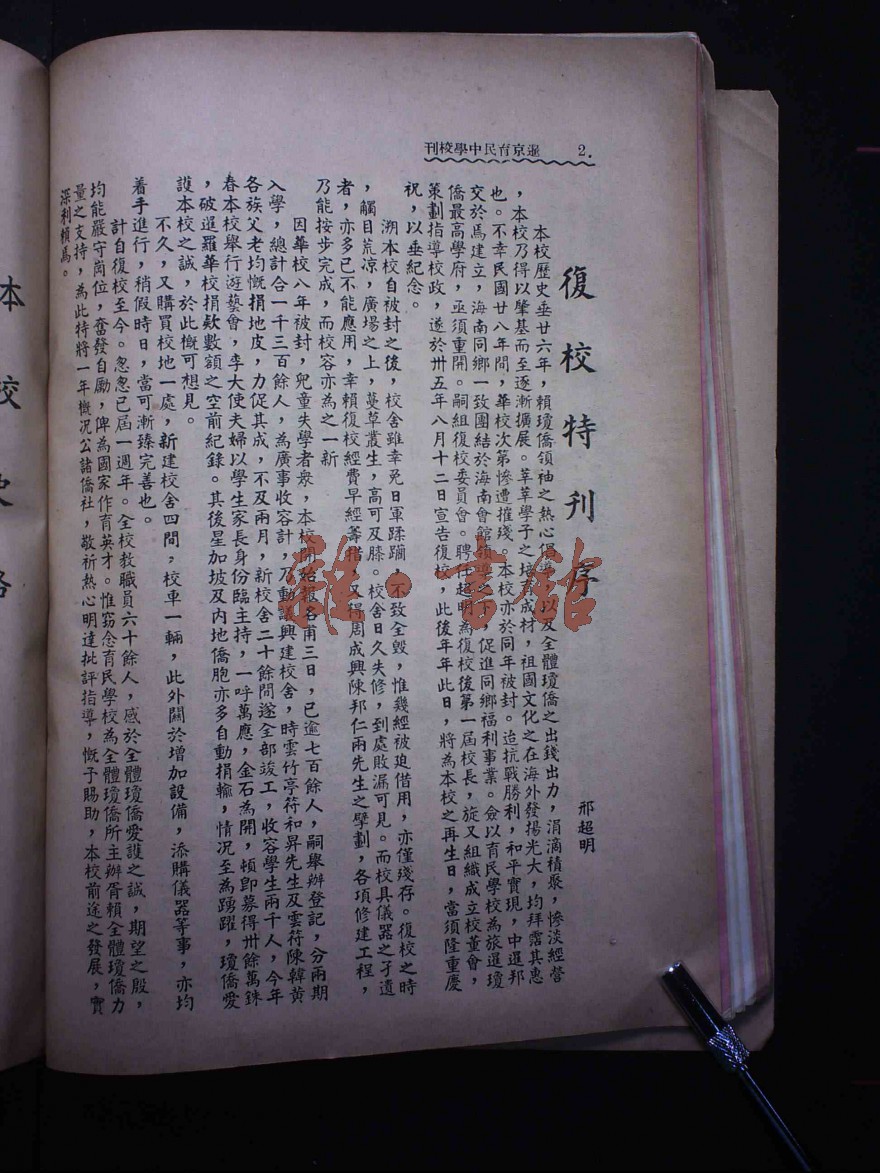 2. 暹京育民中學校刊
復校特刊序
邢超明
本校歷史垂廿六年，賴瓊僑領袖之熱心倡導，以及全體瓊僑之出錢出力，涓滴積聚，慘淡經營
，本校乃得以肇基而至逐漸擴展。莘莘學子之培養成材，祖國文化之在海外發揚光大，均拜靄其惠
也。不幸民國廿八年間，華校次第慘遭摧殘。本校亦於同年被封。迨抗戰勝利，和平實現，中暹邦
交於焉建立，海南同鄉一致團結於海南會館領導之下，促進同鄉福利事業。僉以育民學校為旅暹瓊
僑最高學府，亟須重開。嗣組復校委員會。聘任起明為復校後第一屆校長，旋又組織成立校董會，
策劃指導校政，遂於卅五年八月十二日宣告復校，此後年年此日，將為本校之再生日，當須隆重慶
祝，以垂紀念。
溯本校自被封之後，校舍雖幸免日軍蹂躪，不致全毀，惟幾經被迫借用，亦僅殘存。復校之時
，觸目荒凉，廣場之上，蔓草叢生，高可及膝。校舍日久失修，到處敗漏可見。而校具儀器之孑遺
者，亦多已不能應用，幸賴復校經費早經籌措，又得周成興陳邦仁兩先生之擘劃，各項修建工程，
乃能按步完成，而校容亦為之一新
因華校八年被封，兒童失學者衆，本校開始報名甫三日，已逾七百餘人，嗣舉辦登記，分兩期
入學，總計合一千三百餘人，為廣事收容計，乃動議興建校舍，時雲竹亭符和昇先生及雲符陳韓黄
各族父老均慨捐地皮，力促其成，不及兩月，新校舍二十餘間遂全部竣工，收容學生兩千人，今年
春本校舉行遊藝會，李大使夫婦以學生家長身份臨主持，一呼萬應，金石為開，頓卽募得卅餘萬銖
，破暹羅華校捐欵數額之空前紀錄。其後星加坡及内地僑胞亦多自動捐輸，情况至為踴躍，瓊僑愛
護本校之誠，於此概可想見。
不久，又購買校地一處，新建校舍四間，校車一輛，此外關於增加設備，添購儀器等事，亦均
着手進行，稍假時日，當可漸臻完善也。
計自復校至今。忽忽已屆一週年。全校教職員六十餘人，感於全體瓊僑愛護之誠，期望之殷，
均能嚴守崗位，奮發自勵，俾為國家作育英才。惟窃念育民學校為全體瓊僑所主辦胥賴全體瓊僑力
量之支持，為此特將一年概况公諸僑社，敬祈熱心明達批評指導，慨予賜助，本校前途之發展，實
深利賴焉。
本校史略
雜·書館